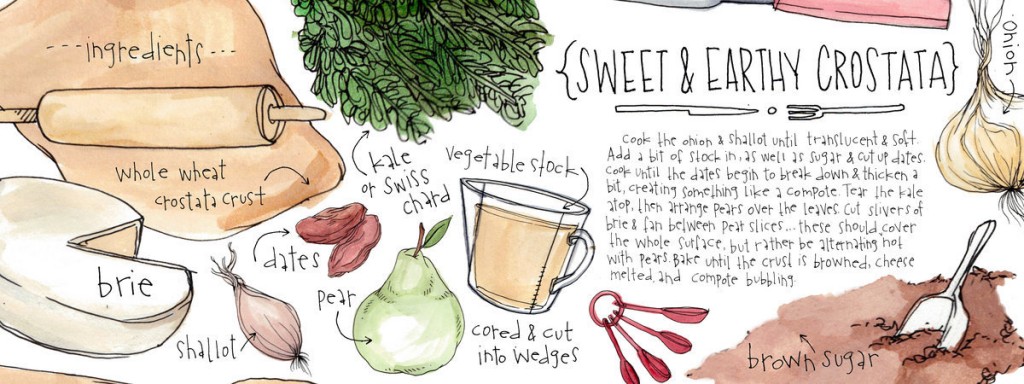 ---ingredients---
whole wheat
crostata crust
brie
shallot
dates
pear
kale
or swiss
chard
vegetable stock
cored & cut
into wedges
{SWEET & EARTHY CROSTATA}
Cook the onion & shallot until translucent & soft.
Add a bit of stock in, as well as sugar & cut up dates.
Cook until the dates begin to break down & thicken a
bit, creating something like a compote. Tear the kale
atop, then arrange pears over the leaves. Cut slivers of
brie & fan between pear slices... these should cover
the whole surface, but rather be alternating hot
with pears. Bake until the crust is browned, cheese
melted, and compote bubbling.
onion
brown sugar